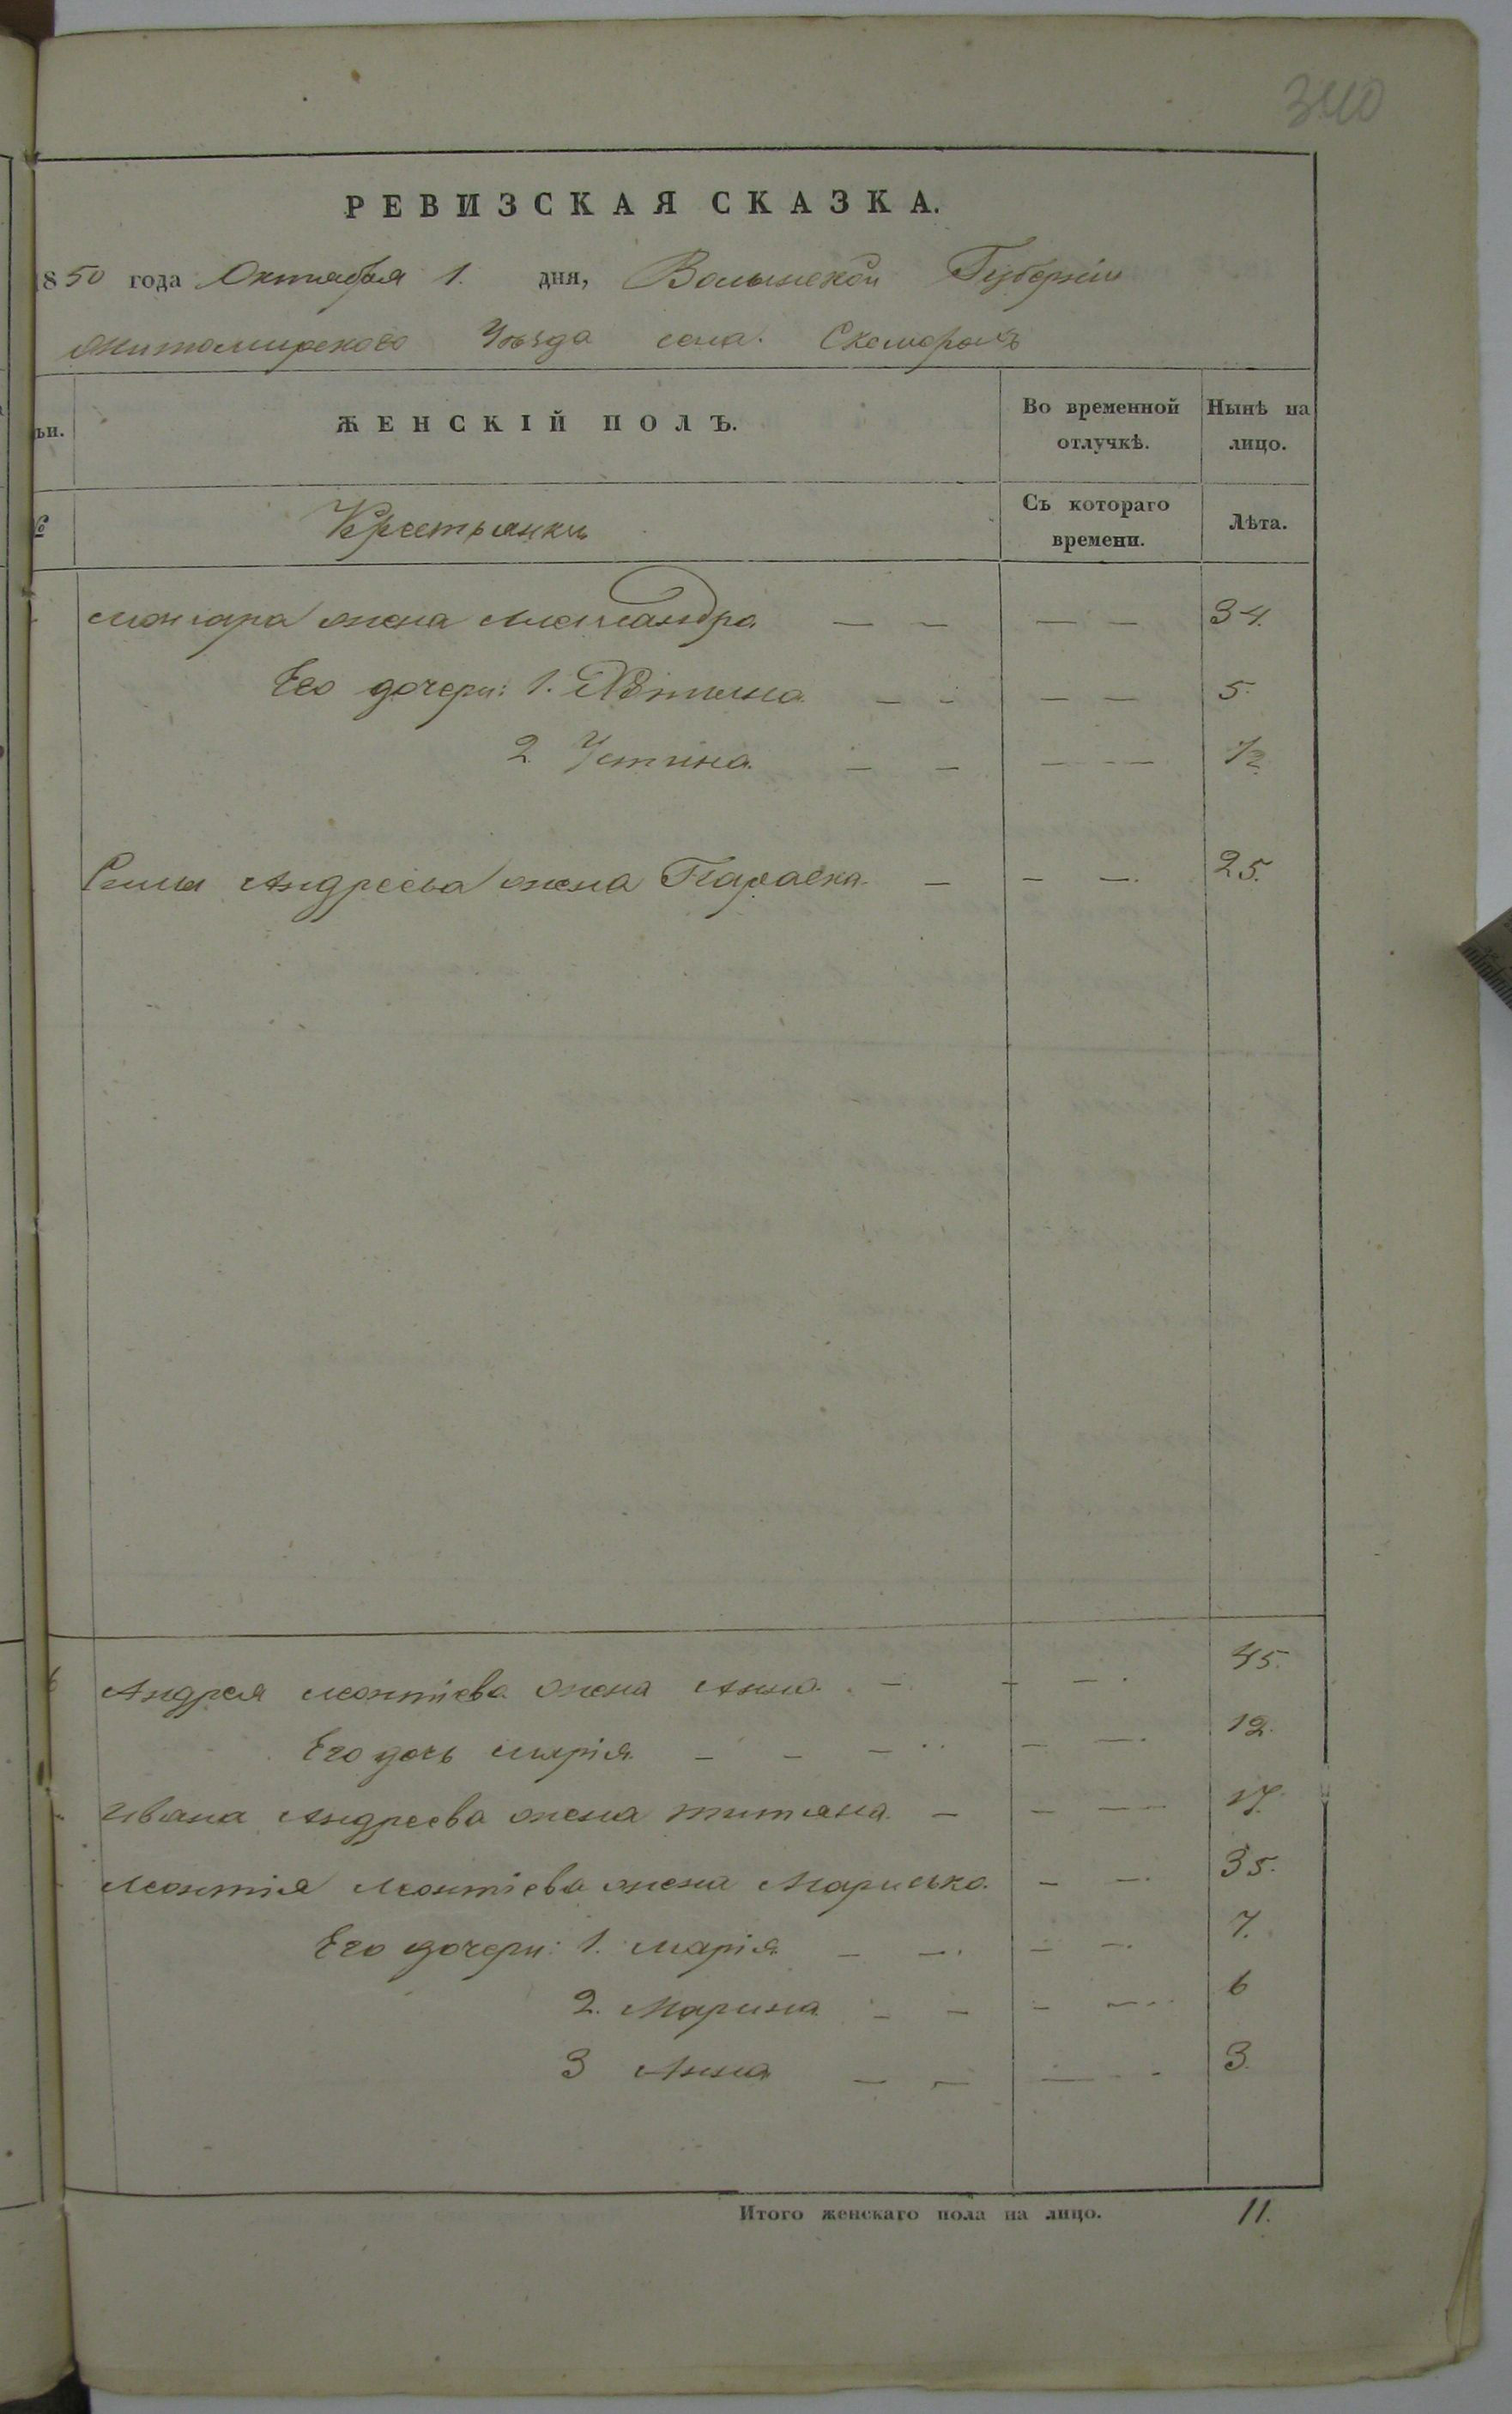 340
РЕВИЗСКАЯ СКАЗКА.
1850 года Октября 1. дня, Волынской Губерніи
Житомирского Уѣзда села. Скоморохъ
ьи.
ЖЕНСКІЙ ПОЛЪ.
Во временной отлучкѣ.
Нынѣ на лицо.
№
Крестьянки
Съ котораго времени.
Лѣта.
жена Александра — — — — 34.
Его дочери: 1. — — — — 5.
2. Устина. — — — — 1/2
Андреева жена Параска. — — —. 25.
6 Андрея Леонтіева жена Анна. — — —. 45.
Его дочь Марія. — — — — —. 12.
Ивана Андреева жена Титяна. — — — 17.
Леонтія Леонтіева жена Марисько. — —. 35.
Его дочери: 1. Марія. — —. — —. 7.
2. Марина. — — — — 6
3 Анна — — — — 3.
Итого женскаго пола на лицо. 11.